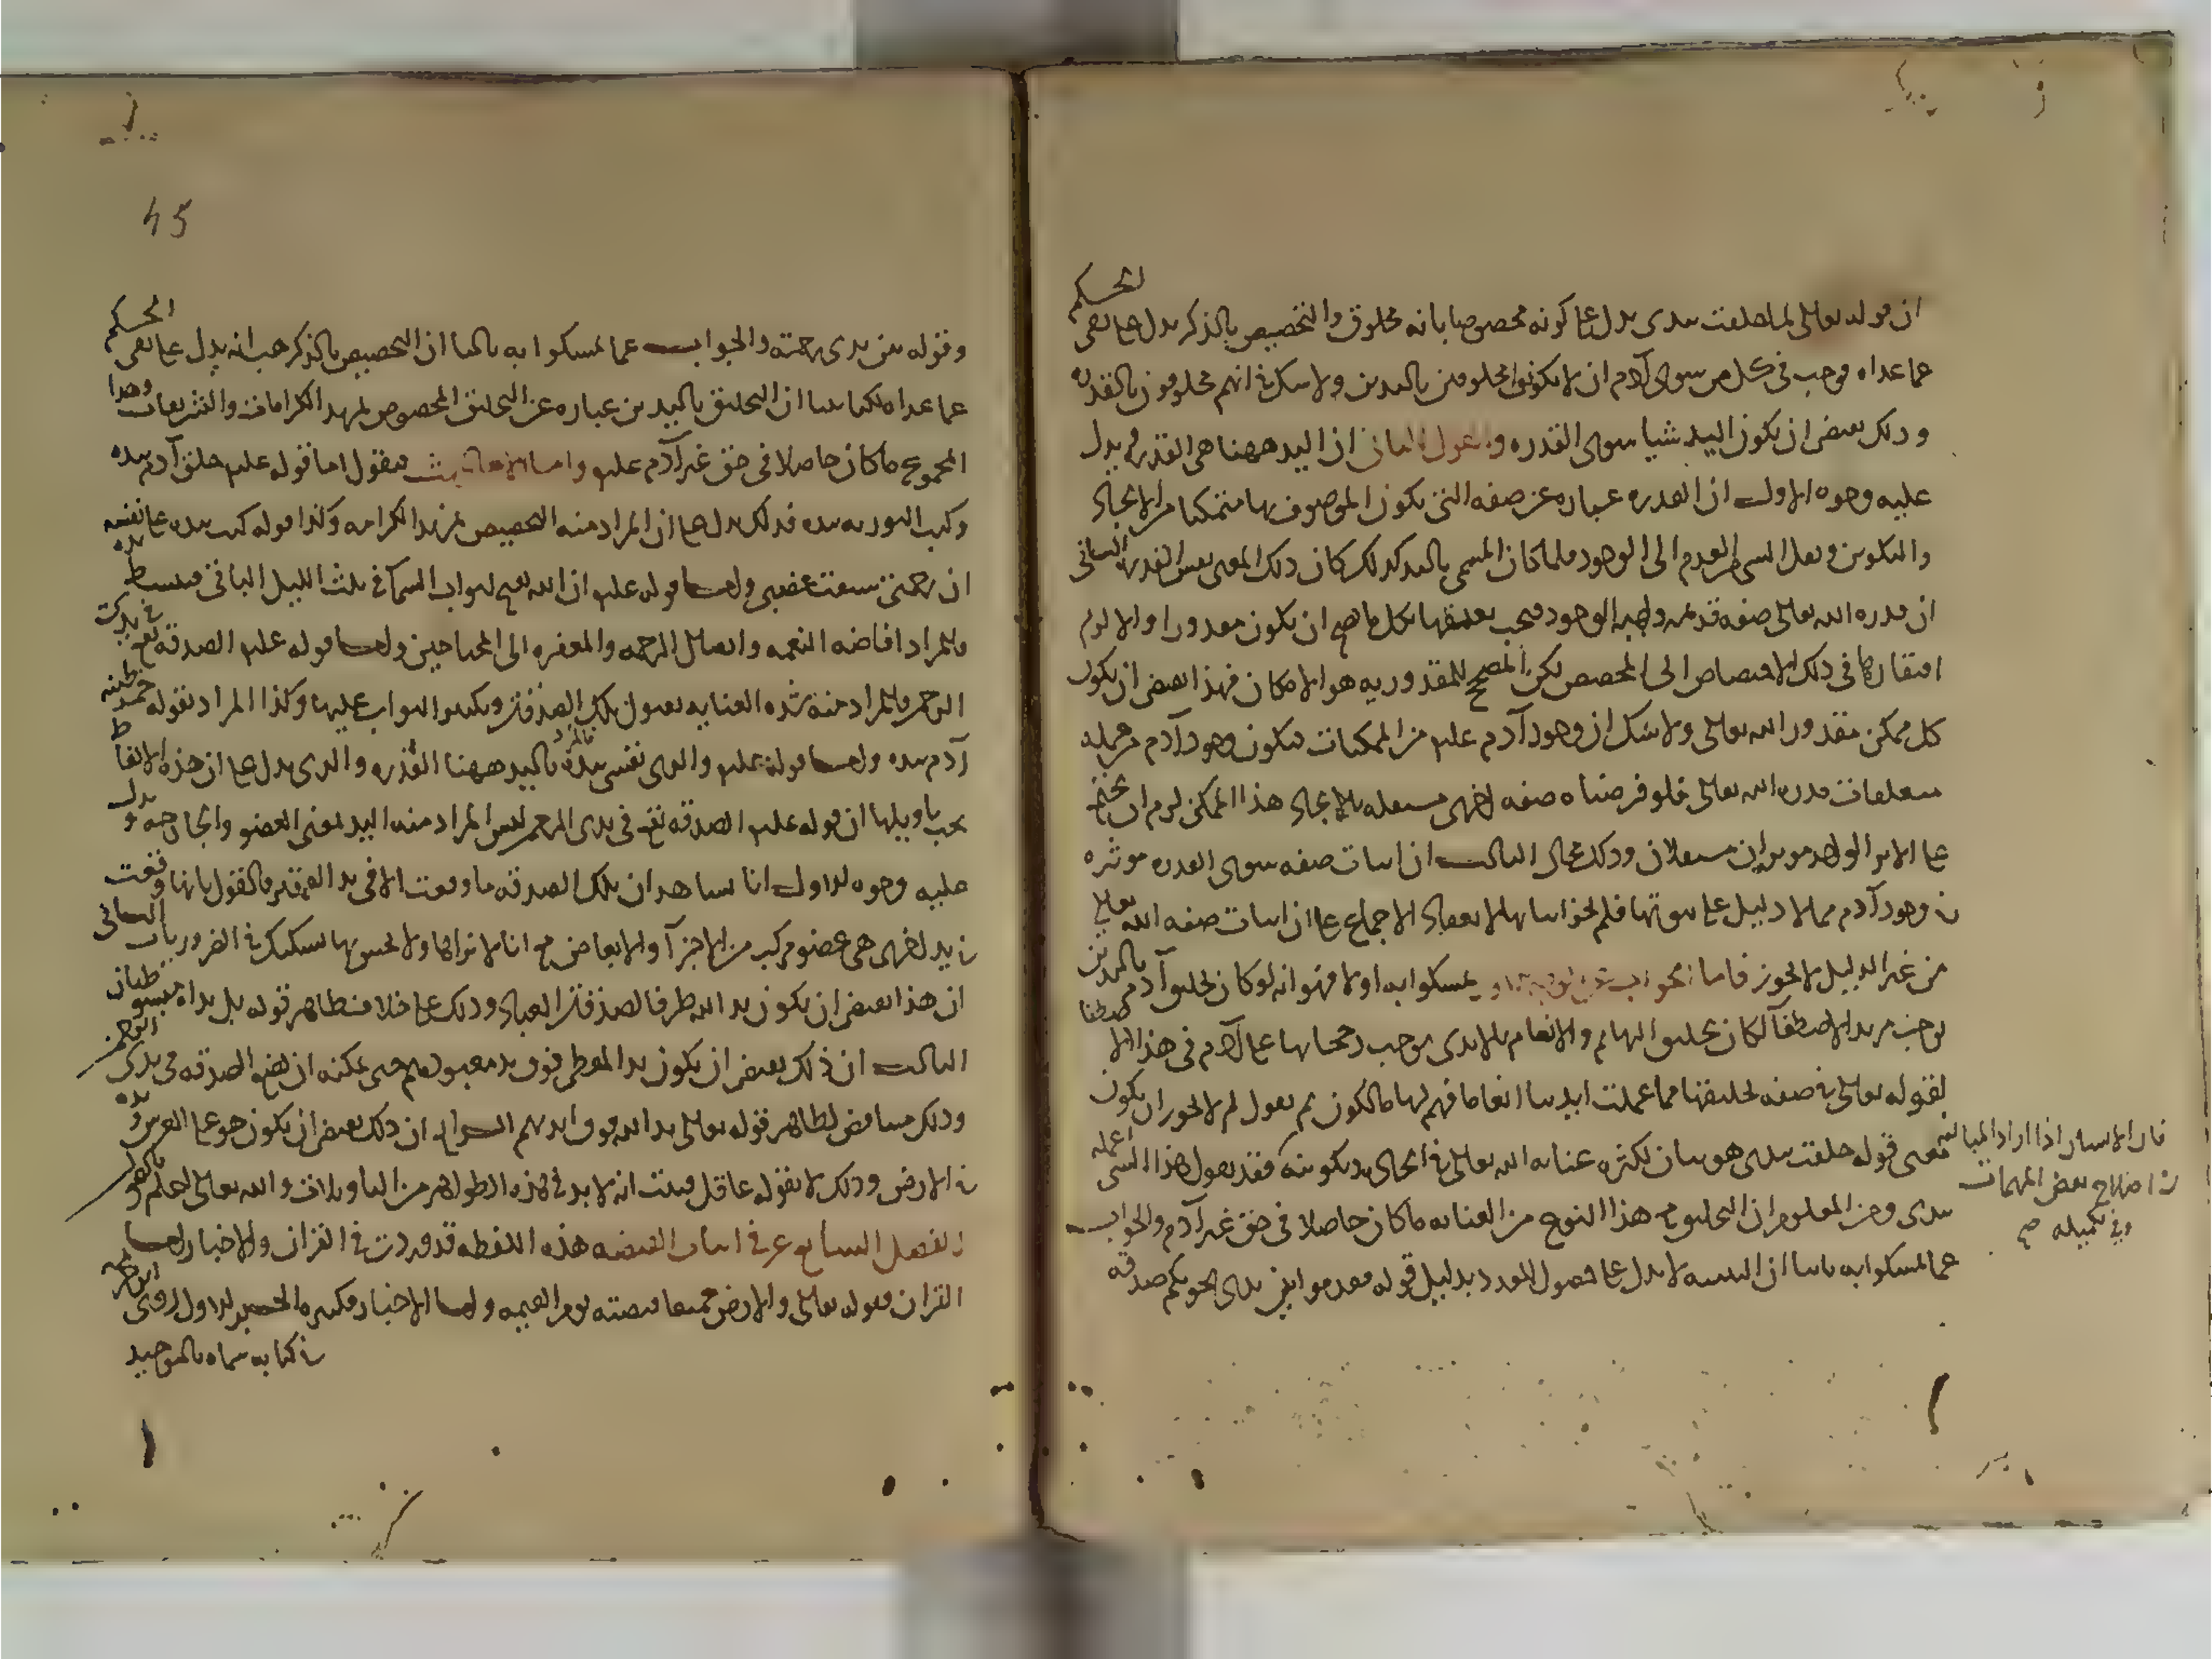 ان قوله تعالى لما خلقت بيدى يدل على كونه مخصوصا بانه مخلوق والتخصيص بالذكر يدل على نفى الحكم
عما عداه فوجب فى كل من سوى آدم ان لا يكونوا مخلوقين باليدين ولا شك فى انهم مخلوقون بالقدرة
وذلك يقتضى ان يكون اليد شيا سوى القدره والقول الثانى ان اليد ههنا هى القدره ويدل
عليه وجوه الاول ان القدره عباره عن صفه التى يكون الموصوف بها متمكنا من الايجاد
والتكوين ونقل الشى من العدم الى الوجود فلما كان المسمى باليد كذلك كان ذلك المعنى نفس القدره الثانى
ان قدره الله تعالى صفه قديمه واجبه الوجود فيجب تعلقها بكل ما صح ان يكون مقدورا والا لزم
افتقارها فى ذلك الاختصاص الى المخصص لكن المصحح للمقدوريه هو الامكان فهذا يقتضى ان يكون
كل ممكن مقدور الله تعالى ولا شك ان وجود آدم عليه من الممكنات فيكون وجود آدم من جمله
متعلقات قدره الله تعالى فلو فرضناه صفه اخرى مستقله بالايجاد هذا الممكن لزم ان يجتمع
على الاثر الواحد موثران مستقلان وذلك محال الثالث ان اثبات صفه سوى القدره موثره
فى وجود آدم مما لا دليل على ثبوتها فلم يجز اثباتها لانعقاد الاجماع على ان اثبات صفه الله تعالى
من غير الدليل لا يجوز فاما الجواب عن تمسكوا به اولا فهو انه لو كان تخليق آدم باليدين
يوجب مزيد الاصطفآ لكان تخليق البهايم والانعام بالايدى يوجب رجحانها على آدم فى هذا الاصطفا
لقوله تعالى فى صفه تخليقها مما عملت ايدينا انعاما فهم لها مالكون ثم نقول لم لا يجوز ان يكون
معنى قوله خلقت بيدى هو بيان لكثره عنايه الله تعالى فى ايجاده وتكوينه فقد يقول هذا الشى اعمله
بيدى ومن المعلوم ان التخليق مع هذا النوع من العنايه ما كان حاصلا فى حق غير آدم والجواب
عما تمسكوا به ثانيا ان التثنيه لا يدل على حصول العدد بدليل قوله فقدموا بين يدى نجويكم صدقه
فان الانسان اذا اراد المبالغه
فى اصلاح بعض المهمات
وفى تكميله صح
45
وقوله بين يدى رحمته والجواب عما تمسكوا به ثالثا ان التخصيص بالذكر هب انه يدل على نفى الحكم
عما عداه لكنا بينا ان التخليق باليدين عباره عن التخليق المخصوص لمزيد الكرامات والتشريفات وهذا
المجموع ما كان حاصلا فى حق غير آدم عليه واما الاحاديث فنقول اما قوله عليه خلق آدم بيده
وكتب التوريه بيده فذلك يدل على ان المراد منه التخصيص لمزيد الكرامه وكذا قوله كتب بيده على نفسه
ان رحمتى سبقت غضبى واما قوله عليه ان الله يفتح ابواب السما فى ثلث الليل الباقى فيبسط يده
فالمراد افاضه النعمه وايصال الرحمه والمغفره الى المحتاجين واما قوله عليه الصدقه تقع فى يد
الرحمن فالمراد منه شده العنايه بقبول تلك الصدقه وتكثير الثواب عليها وكذا المراد بقوله خمر طينه
آدم بيده واما قوله عليه والذى نفسى بيده فالمراد باليد ههنا القدره والذى يدل على ان هذه الالفاظ
يجب تاويلها ان قوله عليه الصدقه تقع فى يدى الرحمن ليس المراد منه اليد بمعنى العضو والجارحه ويدل
عليه وجوه الاول انا نشاهد ان تلك الصدقه ما وقعت الا فى يد الفقير فالقول بانها وقعت
فى يد اخرى هى عضو مركب من الاجزآ والابعاض مع انا لا نراها ولا نحس بها تشكيك فى الضروريات الثانى
ان هذا يقتضى ان يكون يد الله ظرفا لصدقه العباد وذلك على خلاف ظاهر قوله بل يداه مبسوطتان
الثالث ان ذلك يقتضى ان يكون يد المعطى فوق يد معبودهم حتى يمكنه ان يضع الصدقه فى يد الرحمن
وذلك مناقض لظاهر قوله تعالى يد الله فوق ايديهم الرابع ان ذلك يقتضى ان يكون هو على العرش ويده
فى الارض وذلك لا يقوله عاقل فثبت انه لا بد فى هذه الظواهر من التاويلات والله تعالى اعلم
الفصل السابع عشر فى اثبات القبضه هذه اللفظه قد وردت فى القران والاخبار اما
القران فقوله تعالى والارض جميعا قبضته يوم القيمه واما الاخبار فكثيره الخبر الاول روى
فى كتابه سماه بالتوحيد